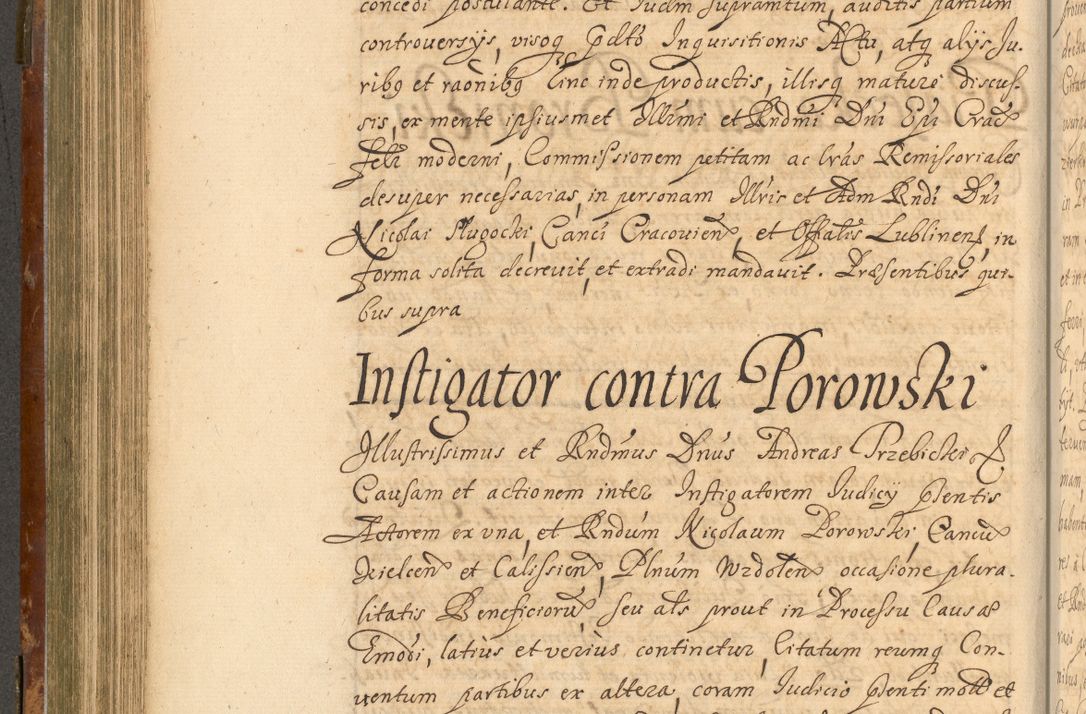 concedi postulante. Et Iudm supramtum, auditis partium
controuersijs, visoq Pdto Inquisitionis Actu, atq alijs Iu-
ribq et raonibq hinc inde productis, illisq mature discus-
sis, ex mente ipsiusmet Illrmi et Rndmi Dni Epi Crac
felr moderni, Commissionem petitam ac lras Remissoriales
desuper necessarias, in personam Illris et Adm Rndi Dni
Nicolai Slugocki, Canci Cracouien, et Offalis Lublinens, in
forma solita decreuit, et extradi mandauit. Præsentibus qui-
bus supra
Instigator contra Porowski
Illustrissimus et Rndmus Dnus Andreas Trzebicki
Causam et actionem inter Instigatorem Iudicij Pentis
Actorem ex vna, et Rndum Nicolaum Porowski, Cancu
Kielcen et Calissien, Plnum Wzdolen occasione plura-
litatis Beneficioru, seu als prout in Processu Causæ
Emodi, latius et verius continetur, Citatum reumq Con-
uentum partibus ex altera, coram Iudicio Penti mott et